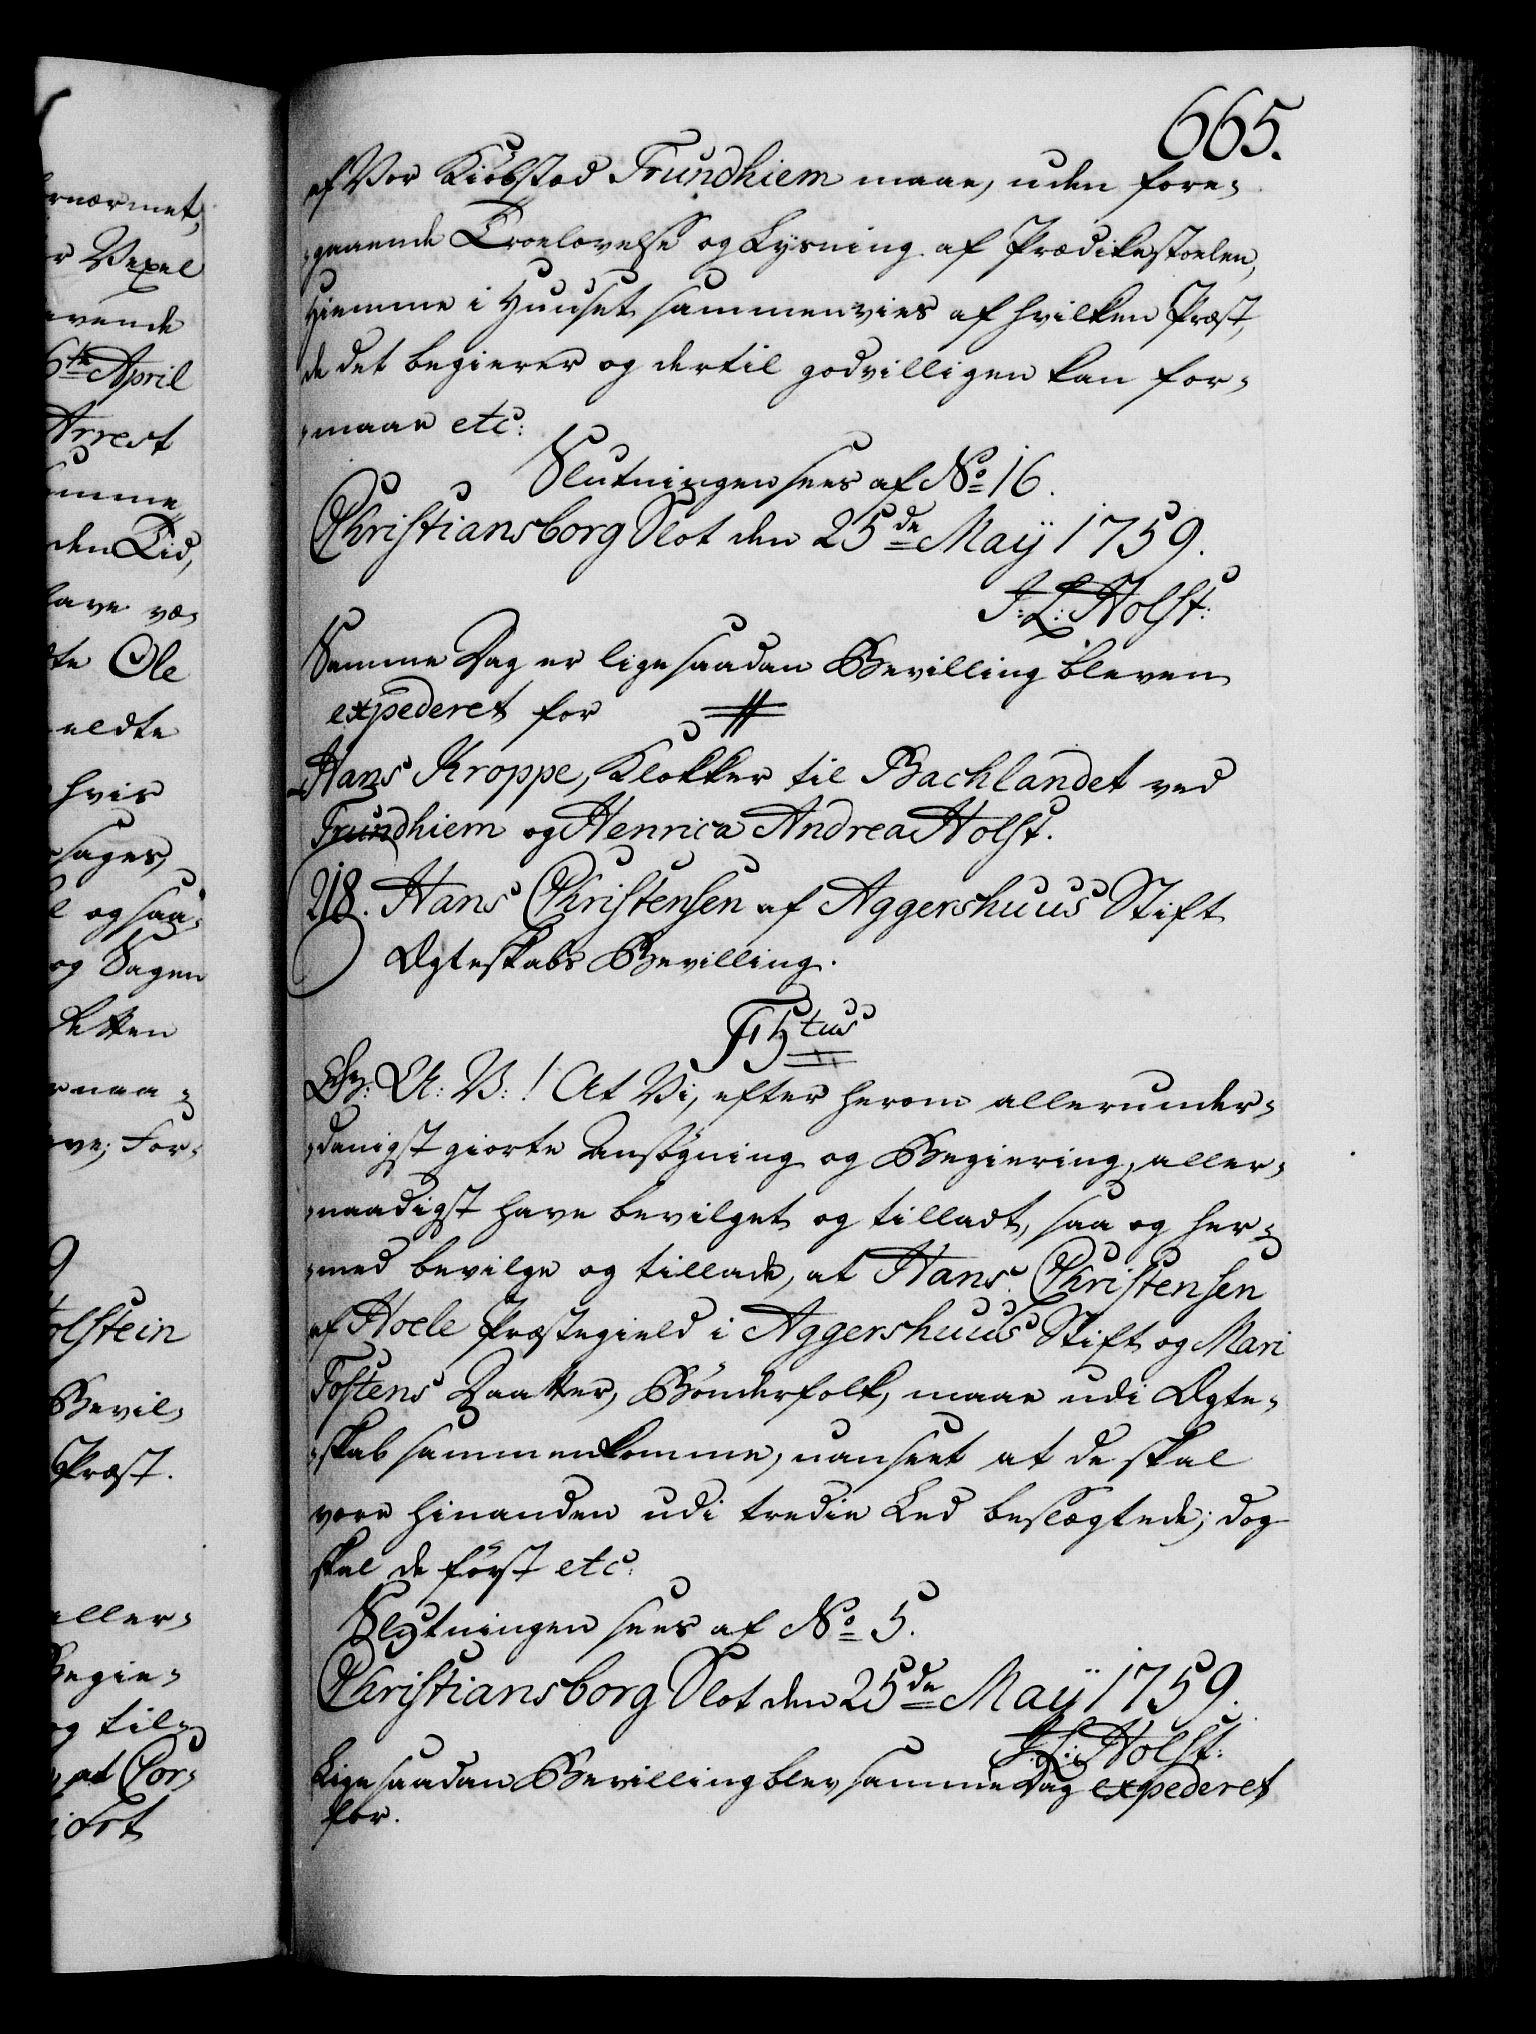 665.
af Vor Kiöbstad Trundhiem maae, uden fore-
-gaaende Troelovelse og Lysning af Prædikestoelen,
Hiemme i Huuset sammenvies af hvilken Præst,
de det begierer og dertil godvilligen kan for-
-maae etc:
Slutningen sees af No 16.
Christiansborg Slot den 25de May 1759.
J: L: Holst:
Samme Dag er lige saadan Bevilling bleven
expederet for
Hans Kroppe, Klokker til Bachlandet ved
Trundhiem og Henrica Andrea Holst.
218. Hans Christensen af Aggershuus Stift
Ægteskabs Bevilling.
F 5tus
Gr: A: V: ! At Vi, efter herom allerunder-
-danigst giorte Ansøgning og Begiering, aller-
-naadigst have bevilget og tilladt, saa og her-
-med bevilge og tillade, at Hans Christensen
af Hoele Præstegield i Aggershuus Stift og Mari
Tostens Daatter, Bönderfolk, maae udi Ægte-
-skab sammenkomme, uanseet at de skal
være hinanden udi tredie Led beslægtede; dog
skal de först etc:
Slutningen sees af No 5.
Christiansborg Slot den 25de May 1759.
J: L: Holst:
Lige saadan Bevilling blev samme Dag expederet
for.
ornærmet,
r Vexel
evende
6te April
Arrest
omme
den Tid,
have væ-
te Ole
eldte
hvis
sages,
l og saa-
og Sagen
Retten
rnaa-
ve; For-
9
olstein
Bevil-
Præst.
aller-
Begie-
og til-
at Cor-